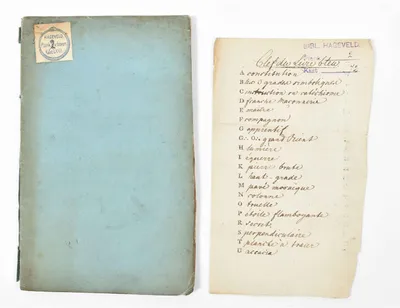 2
BIBL. HASSVELD
Clef du Livre bleu
A constitution
B les 3 grades symboliques
C instruction ou catéchisme
D franche maçonnerie
E maitre
F compagnon
G apprentif
G.. O.. grand Orient
H lumière
I equerre
K pierre brute
L haut grade
M pavé mosaïque
N colonne
O truelle
P etoile flamboyante
R secret
S perpendiculaire
T planche à tracer
U acacia